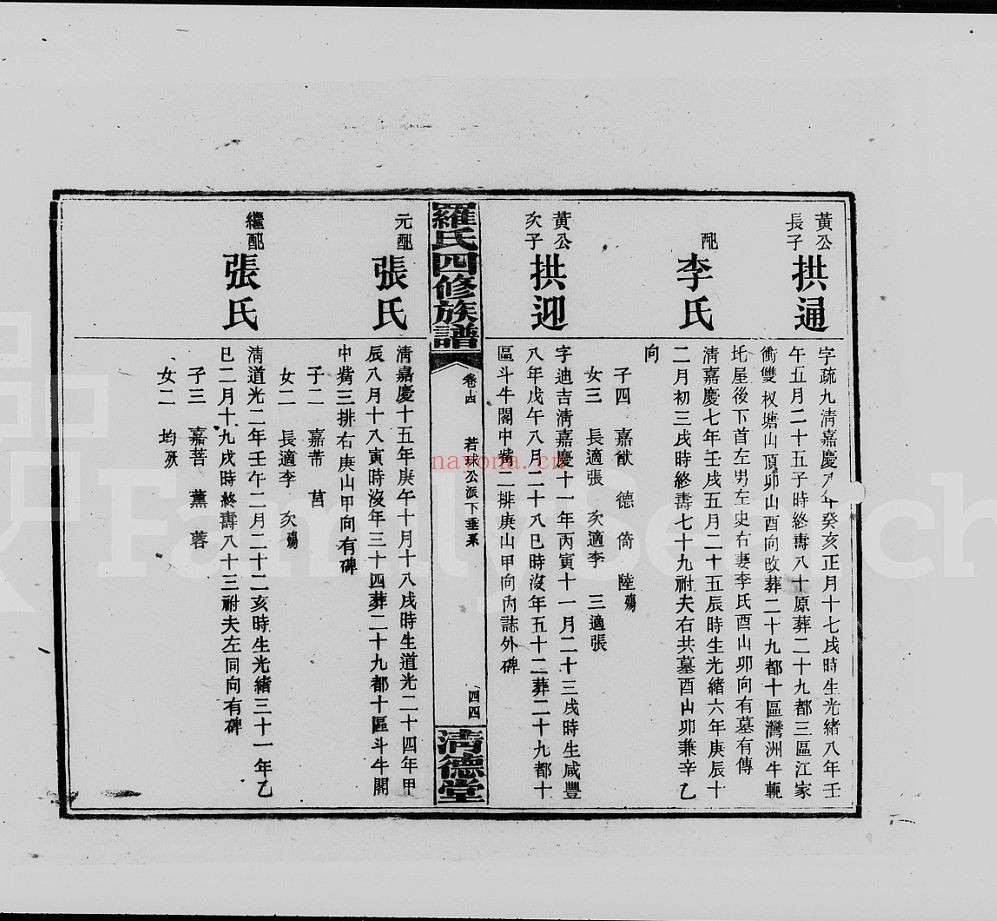 黃公
長子
拱通
字疏九淸嘉慶八年癸亥正月十七戌時生光緒八年壬
午五月二十五子時終壽八十原葬二十九都三區江家
衝雙杈塘山頂卯山酉向改葬二十九都十區灣洲牛軛
坵屋後下首左男左史右妻李氏酉山卯向有墓有傳
配
李氏
淸嘉慶七年壬戌五月二十五辰時生光緒六年庚辰十
二月初三戌時終壽七十九祔夫右共墓酉山卯兼辛乙
向
子四 嘉猷 德 倚 陸殤
女三 長適張 次適李 三適張
黃公
次子
拱迎
字迪吉淸嘉慶十一年丙寅十一月二十三戌時生咸豐
八年戊午八月二十八巳時沒年五十二葬二十九都十
區斗牛閣中嘴二排庚山甲向內誌外碑
羅氏四修族譜
卷十四
若 公派下垂系
四四
淸德堂
元配
張氏
淸嘉慶十五年庚午十月十八戌時生道光二十四年甲
辰八月十八寅時沒年三十四葬二十九都十區斗牛閣
中嘴三排右庚山甲向有碑
子二 嘉芾 莒
女二 長適李 次殤
繼配
張氏
淸道光二年壬午二月二十二亥時生光緒三十一年乙
巳二月十九戌時終壽八十三祔夫左同向有碑
子三 嘉菩 薰 蓉
女二 均殀
nayona.cn
FamilySearch